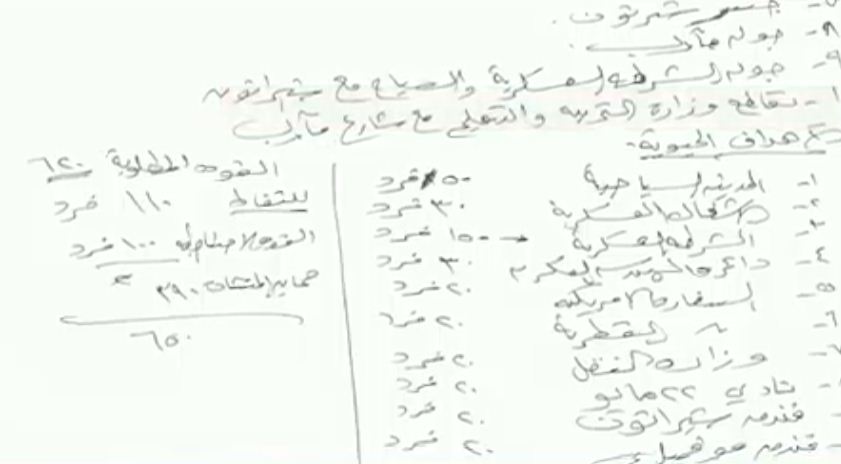 ٨- جولة مأرب.
٩- جولة الشرطة العسكرية والصياح مع شيراتون
١- تقاطع وزارة التربية والتعليم مع شارع مأرب
الأهداف الحيوية-
١- المدينة السياحية ٥٠ فرد
٢- الأشغال العسكرية ٣٠ فرد
٣- الشرطة العسكرية ← ١٥٠ فرد
٤- دائرة الهندسة العسكرية ٣٠ فرد
٥- السفارة الامريكية ٢٠ فرد
٦- " القطرية ٢٠ فرد
٧- وزارة النقل ٢٠ فرد
نادي ٢٢ مايو ٢٠ فرد
فندق شيراتون ٢٠ فرد
فندق موفمبيك ٢٠ فرد
القوة المطلوبة ٦٢٠
للنقاط ١١٠ فرد
القوة الاحتياطية ١٠٠ فرد
حماية المنشآت ٣٩٠
٦٥٠